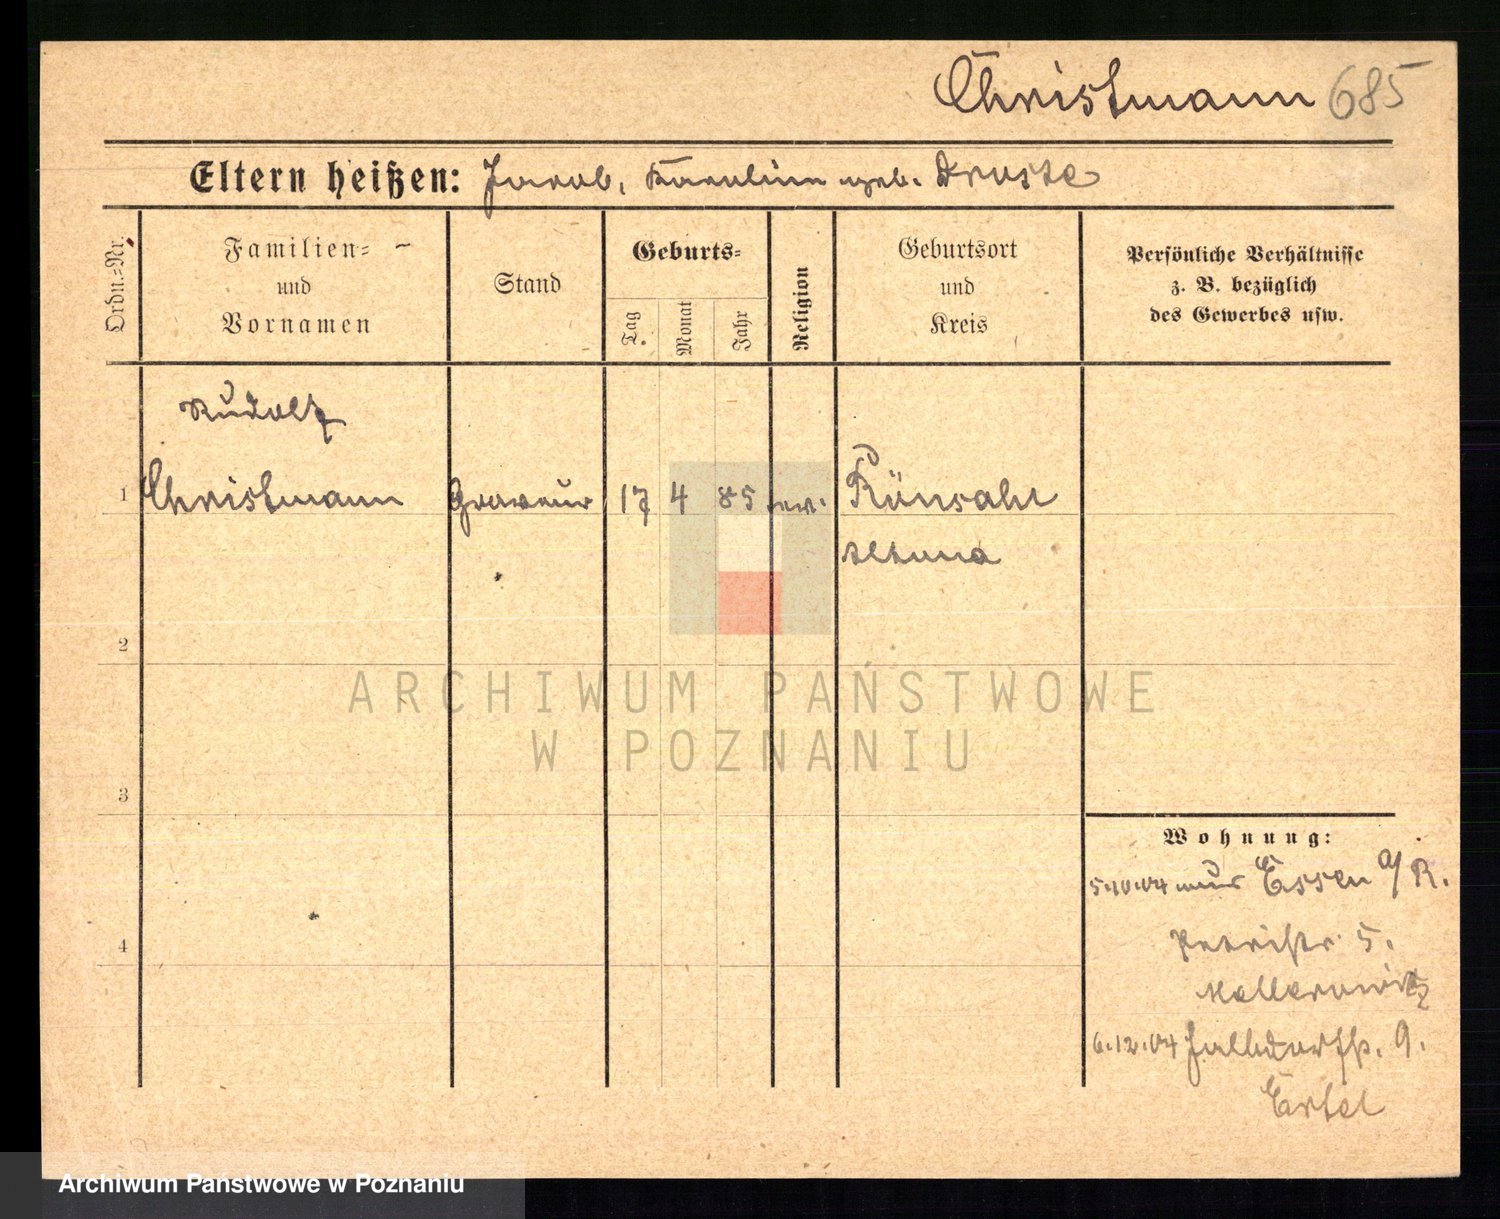 Christmann 685
Eltern heißen: Jacob, Karoline geb. Droste
Ordn.-Nr.
Familien-
und
Vornamen
Stand
Geburts-
Tag
Monat
Jahr
Religion
Geburtsort
und
Kreis
Persönliche Verhältnisse
z. B. bezüglich
des Gewerbes usw.
Rudolf
1 Christmann Graveur 17 4 85 ev. Rönsahl
Altena
2
3
4
Wohnung:
5.10.04 aus Essen a/R.
Petristr. 5.
6.12.04 9.
Ertel
ARCHIWUM PAŃSTWOWE
W POZNANIU
Archiwum Państwowe w Poznaniu